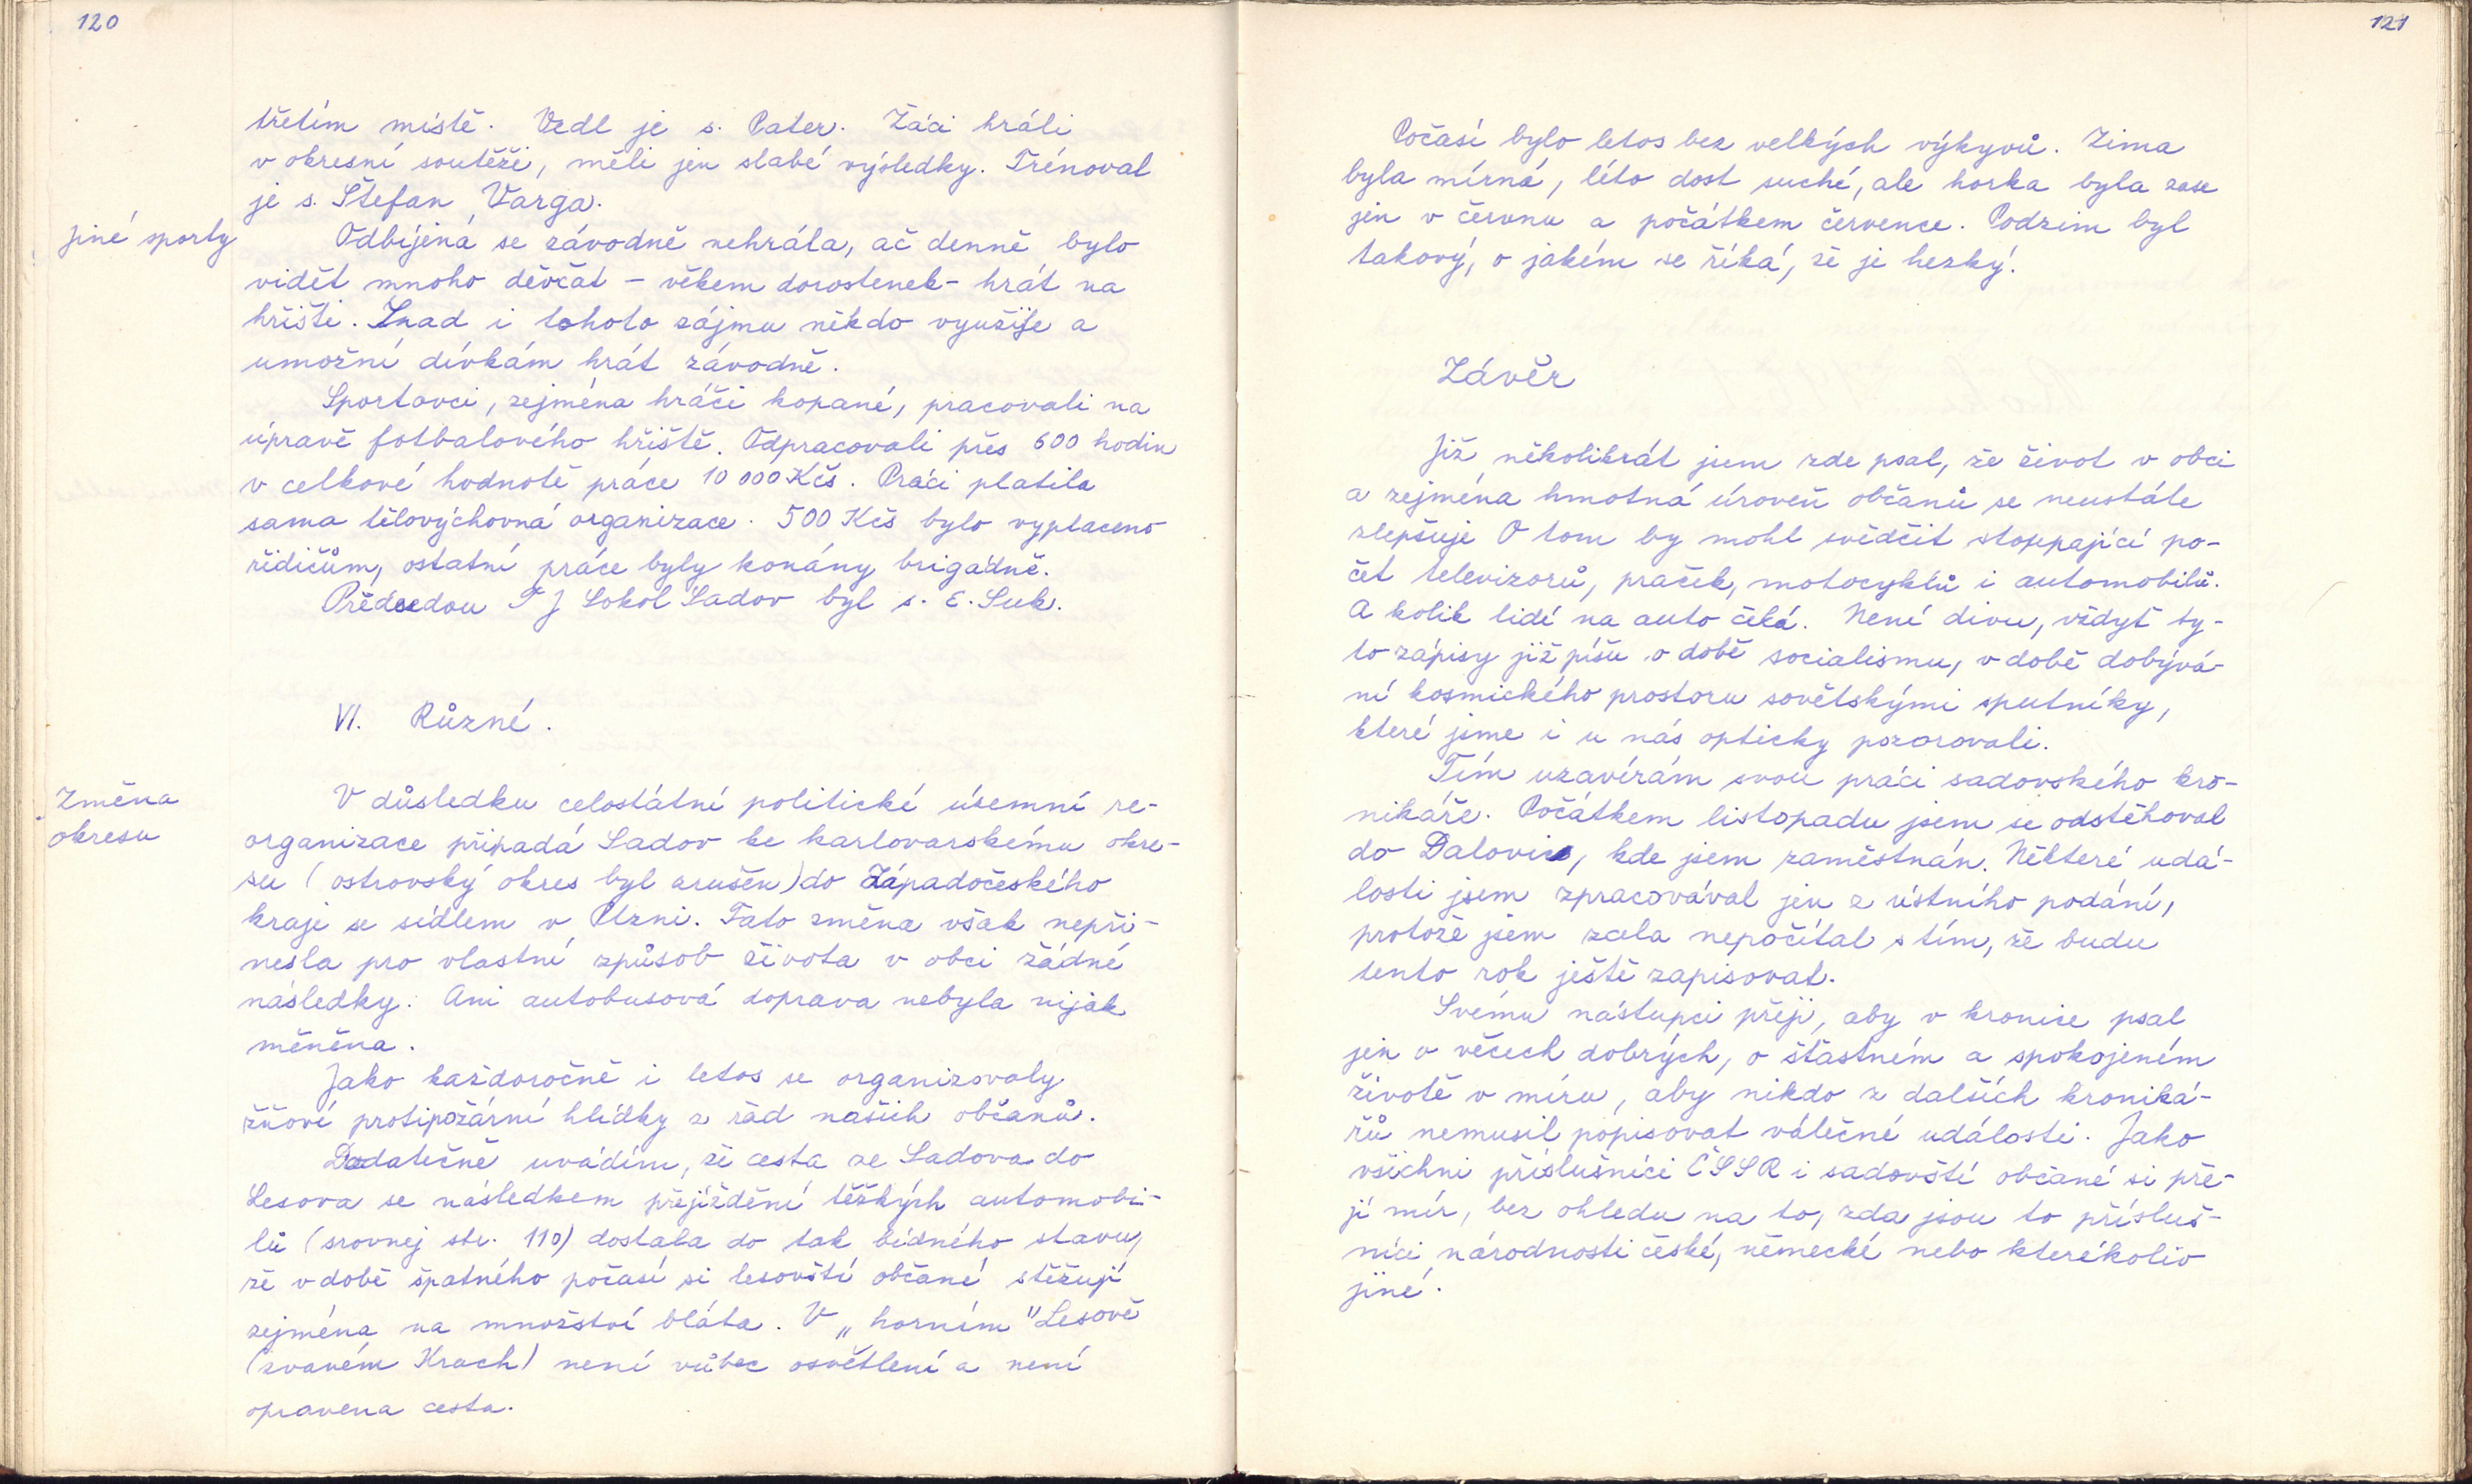 120
třetím místě. Vedl je s. Pater. Žáci hráli
v okresní soutěži, měli jen slabé výsledky. Trénoval
je s. Štefan Varga.
Jiné sporty
Odbíjená se závodně nehrála, ač denně bylo
vidět mnoho děvčat - věkem dorostenek - hrát na
hřišti. Snad i tohoto zájmu někdo využije a
umožní dívkám hrát závodně.
Sportovci, zejména hráči kopané, pracovali na
úpravě fotbalového hřiště. Odpracovali přes 600 hodin
v celkové hodnotě práce 10 000 Kčs. Práci platila
sama tělovýchovná organizace. 500 Kčs bylo vyplaceno
řidičům, ostatní práce byly konány brigádně.
Předsedou TJ Sokol Sadov byl s. E. Suk.
VI. Různé.
Změna
okresu
V důsledku celostátní politické územní re-
organizace připadá Sadov ke karlovarskému okre-
su (ostrovský okres byl zrušen) do Západočeského
kraje se sídlem v Plzni. Tato změna však nepři-
nesla pro vlastní způsob života v obci žádné
následky. Ani autobusová doprava nebyla nijak
měněna.
Jako každoročně i letos se organizovaly
žňové protipožární hlídky z řad našich občanů.
Dodatečně uvádím, že cesta ze Sadova do
Lesova se následkem přejíždění těžkých automobi-
lů (srovnej str. 110) dostala do tak bídného stavu,
že v době špatného počasí si lesovští občané stěžují
zejména na množství bláta. V „horním" Lesově
(zvaném Krach) není vůbec osvětlení a není
opravena cesta.
121
Počasí bylo letos bez velkých výkyvů. Zima
byla mírná, léto dost suché, ale horka byla zase
jen v červnu a počátkem července. Podzim byl
takový, o jakém se říká, že je hezký.
Závěr
Již několikrát jsem zde psal, že život v obci
a zejména hmotná úroveň občanů se neustále
zlepšuje O tom by mohl svědčit stoupající po-
čet televizorů, praček, motocyklů i automobilů.
A kolik lidí na auto čeká. Není divu, vždyť ty-
to zápisy již píšu v době socialismu, v době dobývá-
ní kosmického prostoru sovětskými sputníky,
které jsme i u nás opticky pozorovali.
Tím uzavírám svou práci sadovského kro-
nikáře. Počátkem listopadu jsem se odstěhoval
do Dalovic, kde jsem zaměstnán. Některé udá-
losti jsem zpracovával jen z ústního podání,
protože jsem zcela nepočítal s tím, že budu
tento rok ještě zapisovat.
Svému nástupci přeji, aby v kronice psal
jen o věcech dobrých, o šťastném a spokojeném
životě v míru, aby nikdo z dalších kroniká-
řů nemusil popisovat válečné události. Jako
všichni příslušníci ČSSR i sadovští občané si pře-
jí mír, bez ohledu na to, zda jsou to přísluš-
níci národnosti české, německé nebo kterékoliv
jiné.